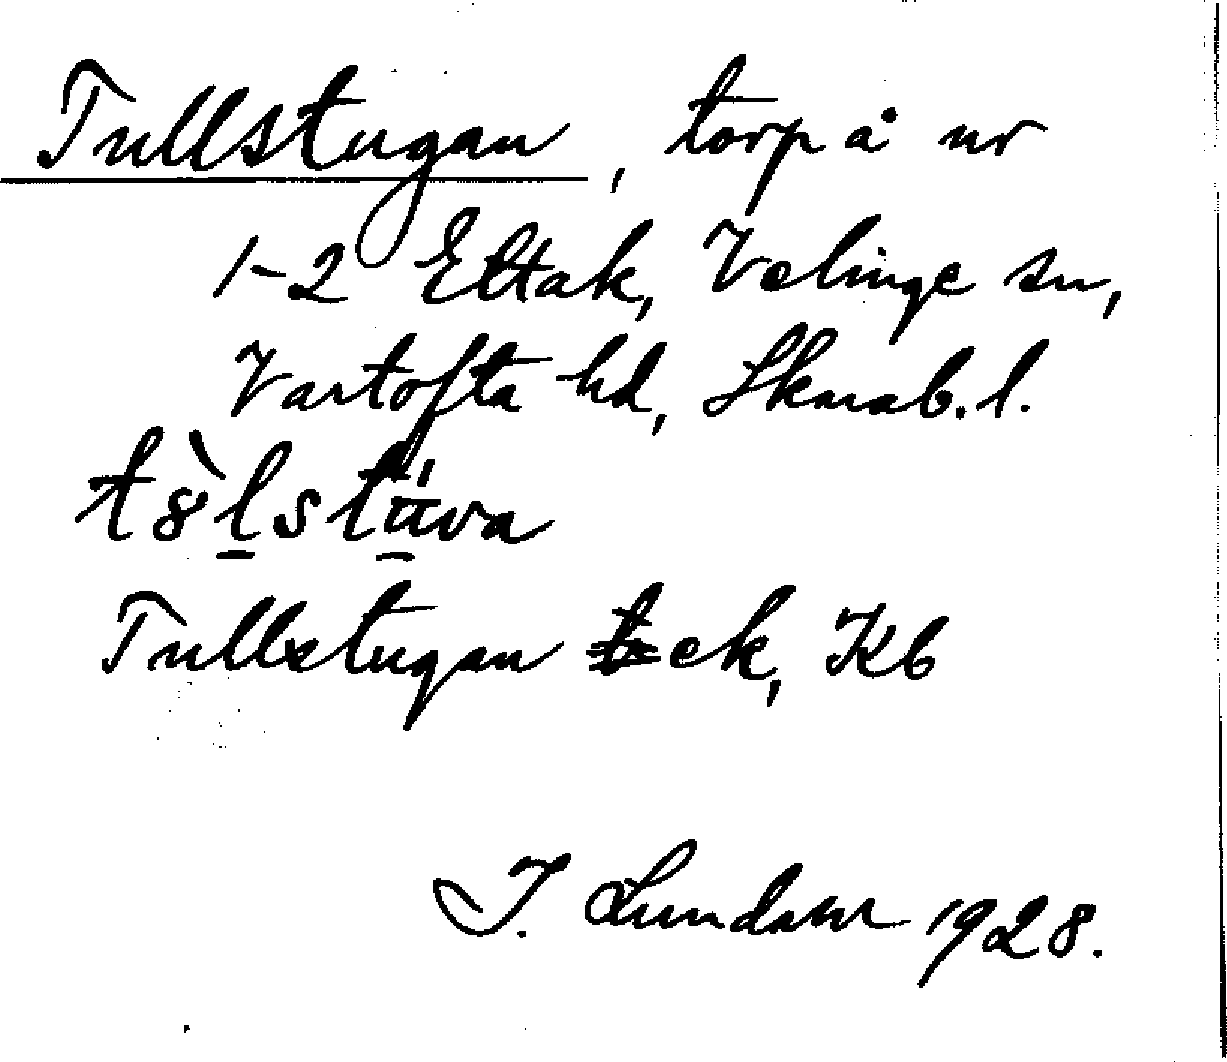 Tullstugan, torp å nr
1-2 Ettak, Velinge sn,
Vartofta hd, Skarab. l.
Tullstugan ek, Kb
I. Lundahl 1928.